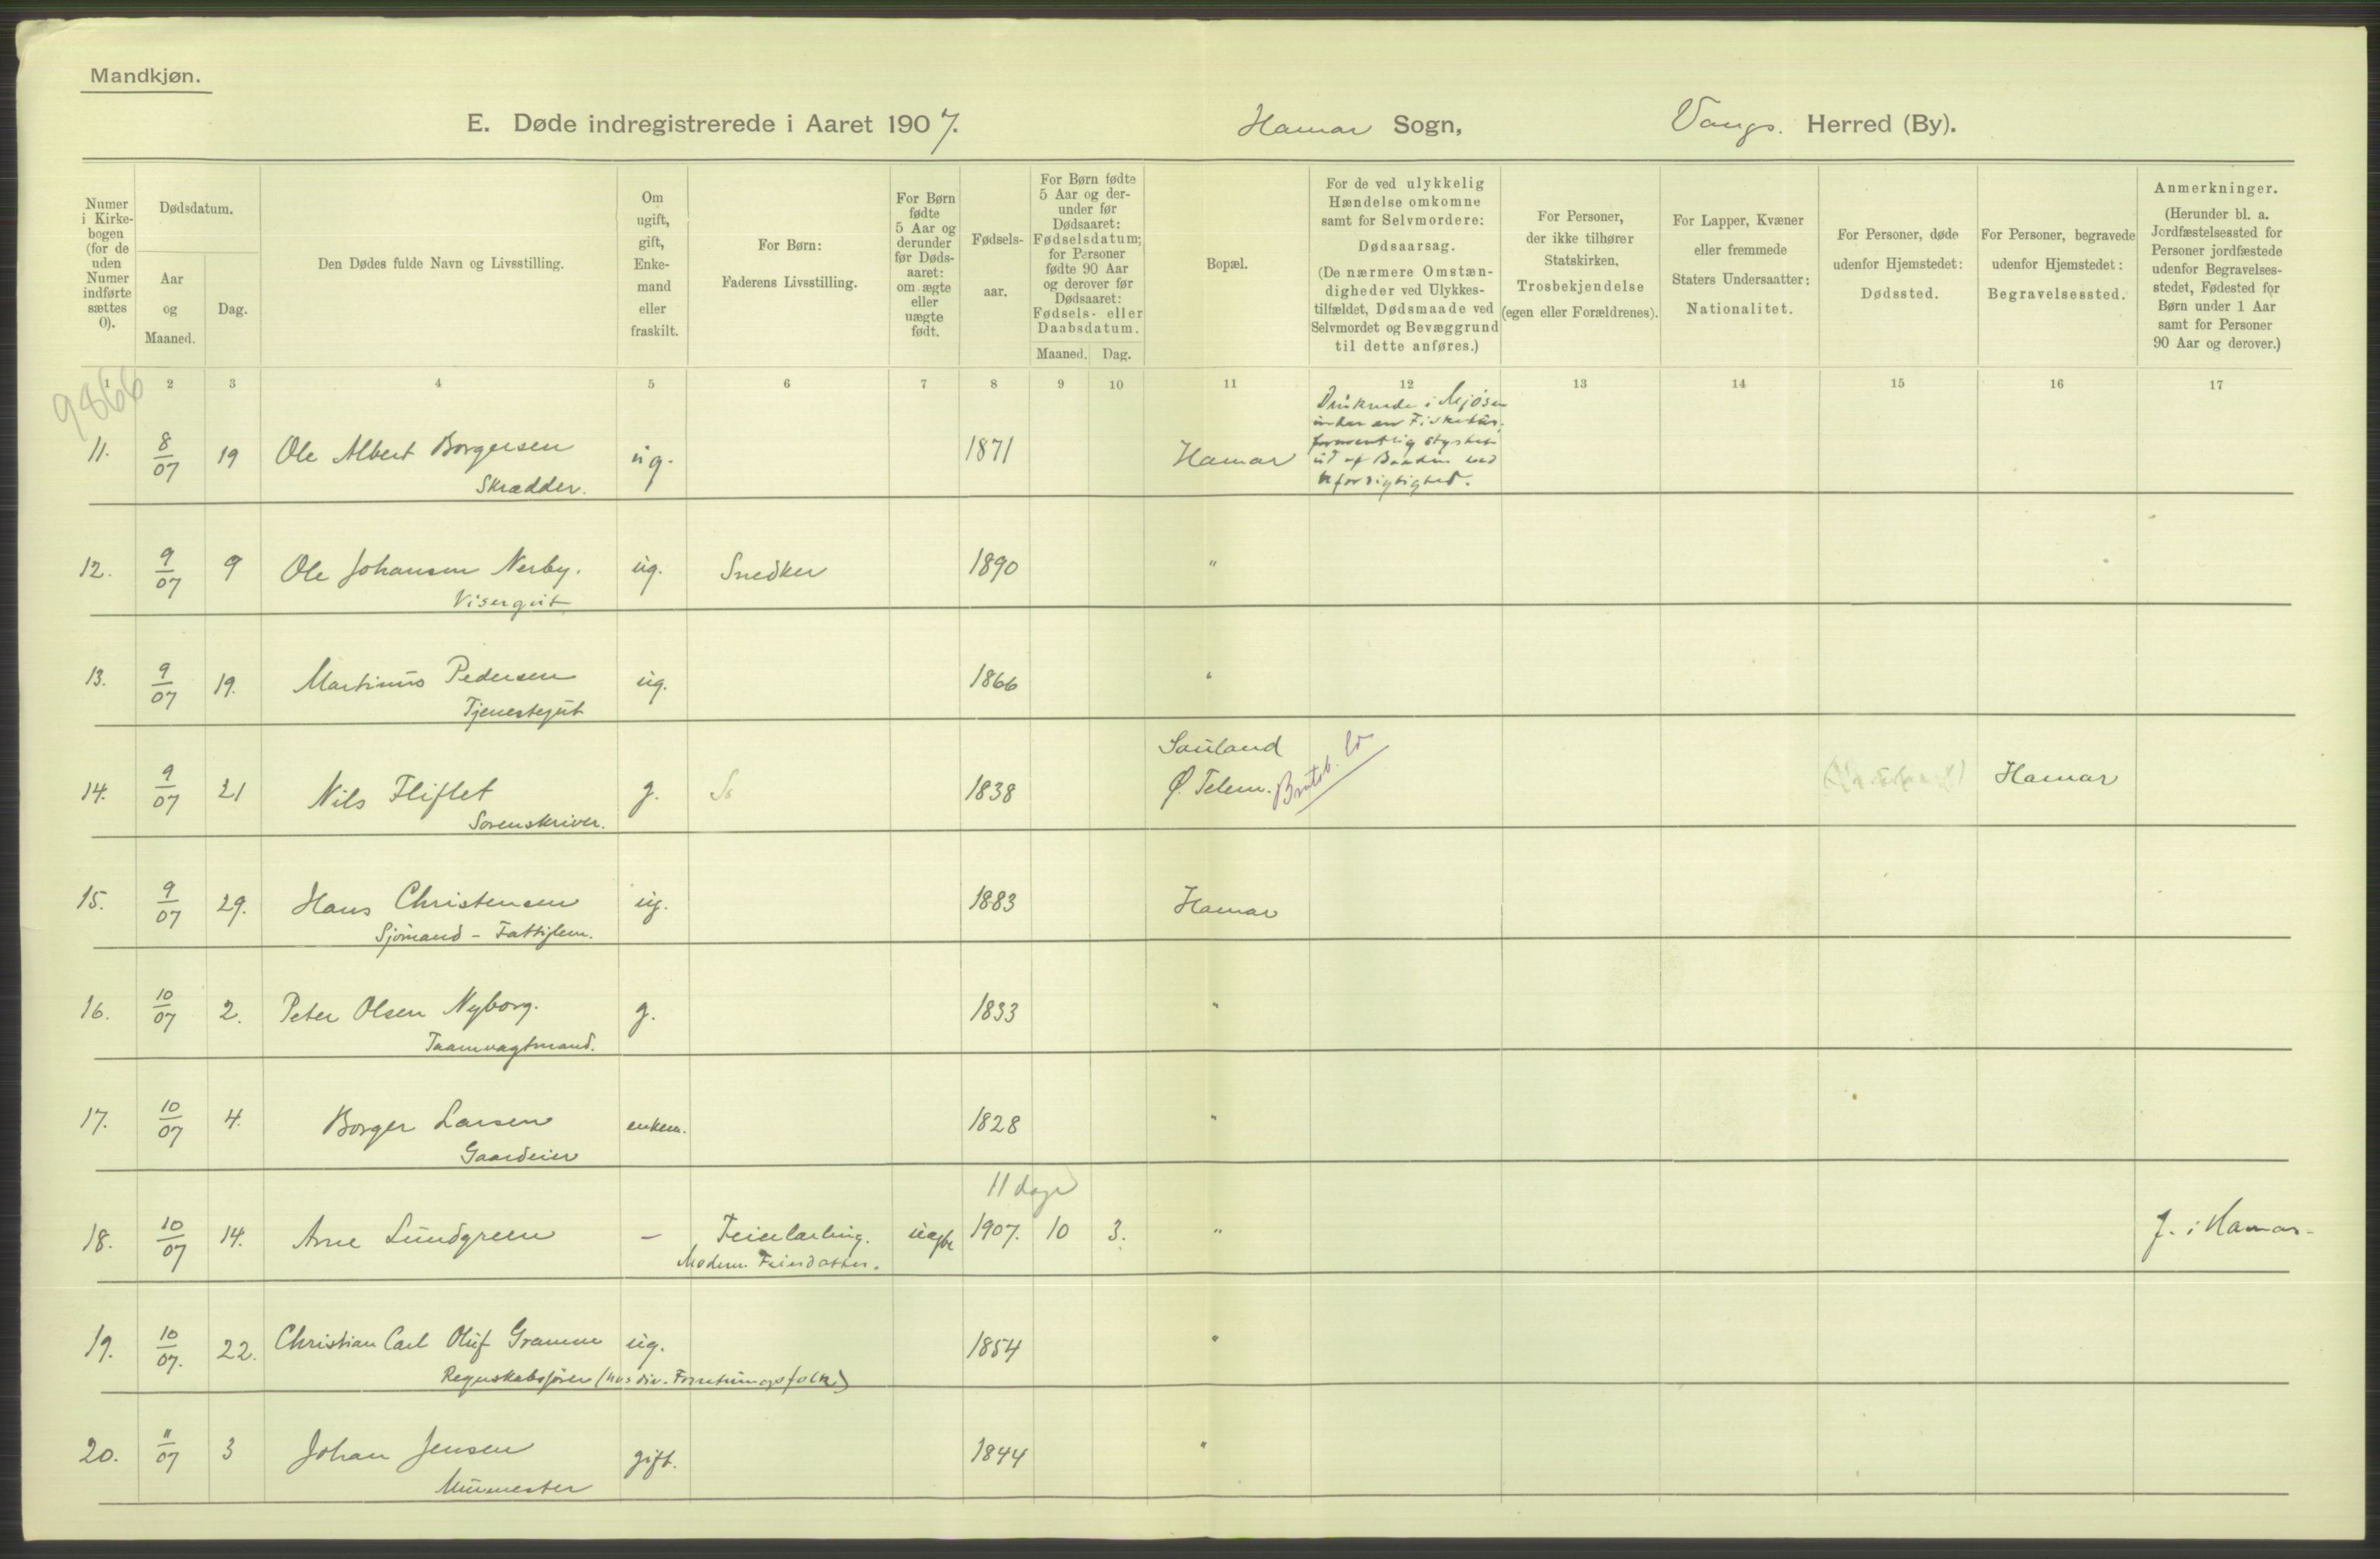 Mandkjøn.
E. Døde indregistrerede i Aaret 1907. Hamar Sogn, Vangs. Herred (By).
Numer i Kirke-bogen (for de uden Numer indførte sættes 0).
Dødsdatum.
Aar og Maaned.
Dag.
Den Dødes fulde Navn og Livsstilling.
Om ugift, gift, Enke-mand eller fraskilt.
For Børn: Faderens Livsstilling.
For Børn fødte 5 Aar og derunder før Døds-aaret: om ægte eller uægte født.
Fødsels-aar.
For Børn fødte 5 Aar og der-under før Dødsaaret: Fødselsdatum; for Personer fødte 90 Aar og derover før Dødsaaret: Fødsels- eller Daabsdatum.
Maaned. Dag.
Bopæl.
For de ved ulykkelig Hændelse omkomne samt for Selvmordere: Dødsaarsag. (De nærmere Omstæn-digheder ved Ulykkes-tilfældet, Dødsmaade ved Selvmordet og Bevæggrund til dette anføres.)
For Personer, der ikke tilhører Statskirken. Trosbekjendelse (egen eller Forældrenes).
For Lapper, Kvæner eller fremmede Staters Undersaatter: Nationalitet.
For Personer, døde udenfor Hjemstedet: Dødssted.
For Personer, begravede udenfor Hjemstedet: Begravelsessted.
Anmerkninger. (Herunder bl. a. Jordfæstelsessted for Personer jordfæstede udenfor Begravelses-stedet, Fødested for Børn under 1 Aar samt for Personer 90 Aar og derover.)
1 2 3 4 5 6 7 8 9 10 11 12 13 14 15 16 17
9866
11. 8/07 19 Ole Albert Borgersen ug. 1871 Hamar
Skrædder.
Druknede i Mjøsen
under en Fisketur,
formentlig styrtet
ud af Baaden ved
Uforsigtighed.
12. 9/07 9 Ole Johansen Nerby. ug. Snedker 1890 "
Visergut
13. 9/07 19. Martinus Pedersen ug. 1866 "
Tjenestegut
14. 9/07 21 Nils Fliflet g. 1838 Sauland Hamar
Sorenskriver. Ø. Telem. Bratsb.
15. 9/07 29. Hans Christensen ug. 1883 Hamar
Sjømand - Fattiglem.
16. 10/07 2. Peter Olsen Nyborg. g. 1833 "
Taarnvagtmand.
17. 10/07 4. Borger Larsen enkem. 1828 "
Gaardeier
11 dage
18. 10/07 14. Arne Lundgreen - Feierlærling. uægte 1907. 10 3. " f. i Hamar
Modern Feierdatter.
19. 10/07. 22. Christian Carl Oluf Gramm ug. 1854 "
Regnskabsfører (hos div. Forretningsfolk)
20. 11/07 3 Johan Jensen gift. 1844 "
Murmester